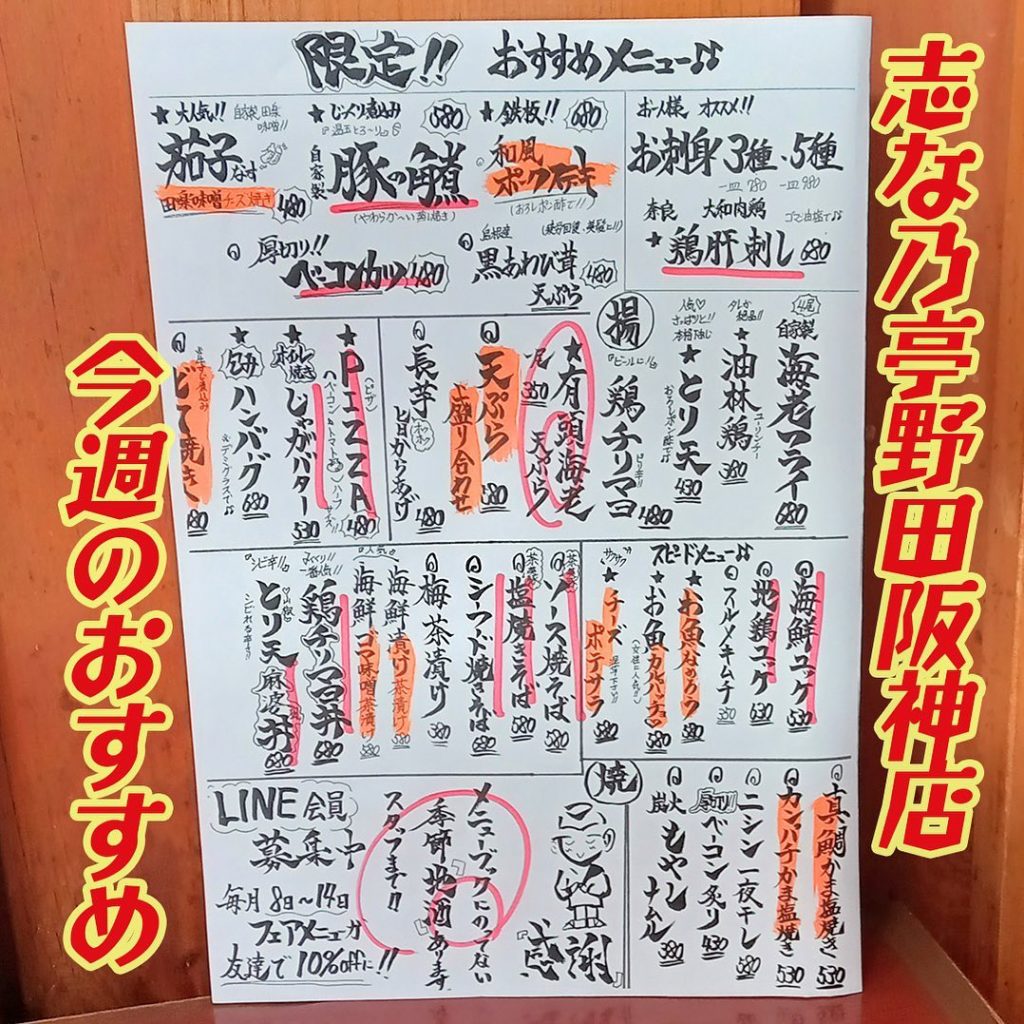 志な乃亭野田阪神店
今週のおすすめ
限定!! おすすめメニュー♪♪
★大人気!! 自家製田楽味噌!!
茄子なす
田楽味噌チーズ焼き 480
★じっくり煮込み 680
『温玉とろ〜り』
自家製 豚の角煮
(やわらか〜い蒸し焼き)
★鉄板!! 680
和風
ポークステーキ
(おろしポン酢で!!)
お一人様 オススメ!!
お刺身3種・5種
一皿780 一皿980
奈良 大和肉鶏 ゴマ油塩で♪
★鶏肝刺し 680
厚切り!!
ベーコンカツ 480
島根産
黒あわび茸
天ぷら 480
揚
4尾
自家製 海老フライ 680
タレが絶品!!
★油林鶏 ユーリンチー 380
人気♡ さっぱりと!!
★とり天 おろしポン酢で♪ 430
『ビールに!!』
鶏チリマヨ ピリ辛!! 480
★有頭海老天ぷら
一尾350
天ぷら盛り合わせ 680
長芋 ホクホク 旨口からあげ 480
★PIZZA (ピザ) ハーフサイズ 480
★ホイル焼き じゃがバター 530
★包丹 ハンバーグ &デミグラスで♪♪ 680
どて焼き
スピードメニュー♪♪
海鮮ユッケ 530
地鶏ユッケ 630
スルメキムチ 350
★お魚なめろう 580
★お魚カルパッチョ (女性に人気!!) 580
サクサク
★チーズポテサラ 580
茶そば
ソース焼そば 580
塩焼きそば 580
シーフード焼きそば 680
梅茶漬け 380
『人気』
海鮮漬け茶漬け 580
海鮮ゴマ味噌茶漬け 580
鶏チリマヨ丼 680
『シビ辛!!』
とり天麻婆丼 680
シビれる辛さ!!
焼
真鯛かま塩焼き 530
カンパチかま塩焼き 530
ニシン一夜干し 580
厚切り!! ベーコン炙り 430
炭火 もやしナムル 380
メニューブックにのってない
季節『地酒』あります
スタッフまで!!
『感謝』
LINE会員
募集中
毎月8日〜14日
フェアメニューが
友達で10%offに!!